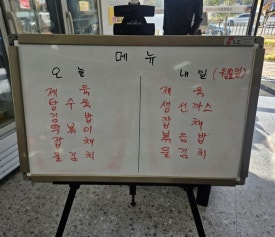 메뉴
오늘
제육
탕수육
김밥
떡볶이
잡채
물김치
내일 (
제육
생선까스
잡채
볶음밥
물김치